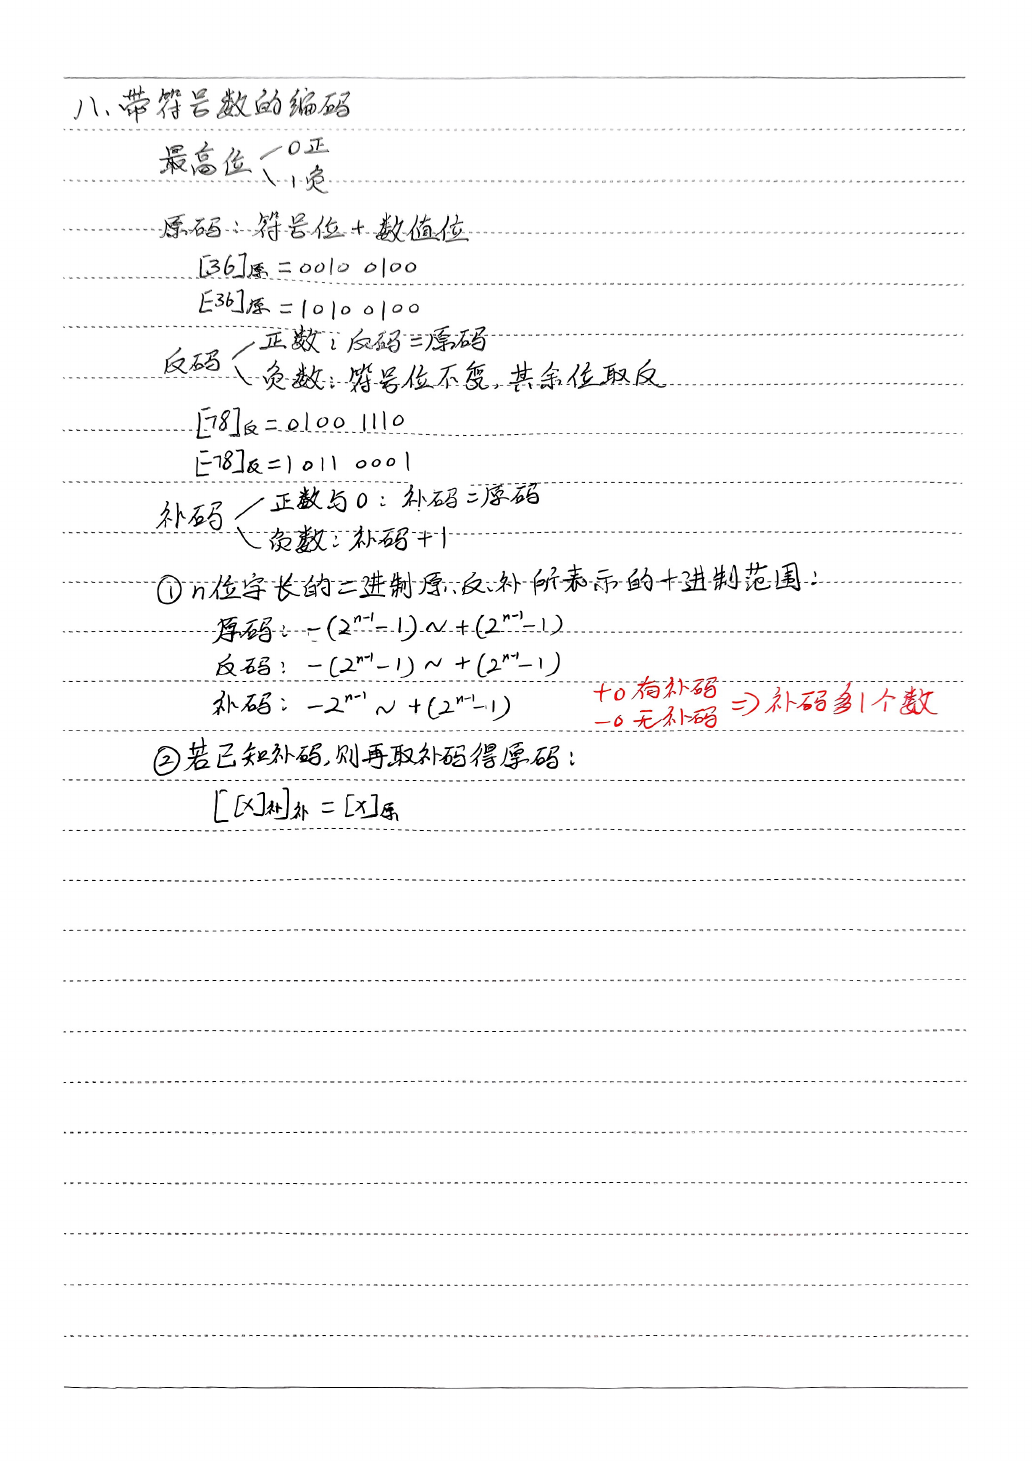 八、带符号数的编码
最高位 0正
1负
原码：符号位+数值位
[36]原=0010 0100
[-36]原=1010 0100
反码 正数：反码=原码
负数：符号位不变，其余位取反
[78]反=0100 1110
[-78]反=1011 0001
补码 正数与0：补码=原码
负数：补码+1
①n位字长的二进制原、反、补所表示的十进制范围：
原码：-(2ⁿ⁻¹-1)~+(2ⁿ⁻¹-1)
反码：-(2ⁿ⁻¹-1)~+(2ⁿ⁻¹-1)
补码：-2ⁿ⁻¹~+(2ⁿ⁻¹-1)
+0有补码
-0无补码 => 补码多1个数
②若已知补码，则再取补码得原码：
[[X]补]补=[X]原